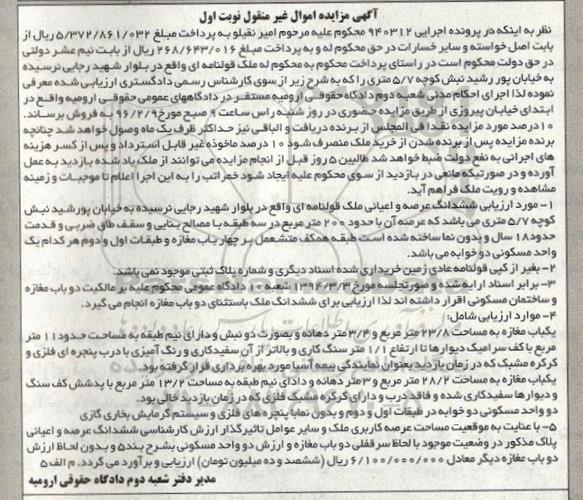 آگهی مزایده اموال غیر منقول نوبت اول
نظر به اینکه در پرونده اجرایی ۹۴۰۳۱۲ محکوم علیه مرحوم امیر نقیلو به پرداخت مبلغ ۵/۳۷۲/۸۶۱/۰۳۲ ریال از
بابت اصل خواسته و سایر خسارات در حق محکوم له و به پرداخت مبلغ ۲۶۸/۶۴۳/۰۱۶ ریال از بابت نیم عشر دولتی
در حق دولت محکوم است در راستای پرداخت محکوم به محکوم له ملک قولنامه ای واقع در بلوار شهید رجایی نرسیده
به خیابان پور رشید نبش کوچه ۵/۷ متری را که به شرح زیر از سوی کارشناس رسمی دادگستری ارزیابی شده معرفی
نموده لذا اجرای احکام مدنی شعبه دوم دادگاه حقوقی ارومیه مستقر در دادگاههای عمومی حقوقی ارومیه واقع در
ابتدای خیابان پیروزی از طریق مزایده حضوری در روز شنبه راس ساعت ۹ صبح مورخ ۹۶/۲/۹ به فروش برساند.
۱۰درصد مورد مزایده نقدا فی المجلس از برنده دریافت و الباقی نیز حداکثر ظرف یک ماه وصول خواهد شد چنانچه
برنده مزایده پس از برنده شدن از خرید ملک منصرف شود ۱۰ درصد ماخوذه غیر قابل استرداد و پس از کسر هزینه
های اجرائی به نفع دولت ضبط خواهد شد طالبین ۵ روز قبل از انجام مزایده می توانند از ملک یاد شده بازدید به عمل
آورده و در صورتیکه مانعی در بازدید از سوی محکوم علیه ایجاد شود خمراتب را به این اجرا اعلام تا موجبات و زمینه
مشاهده و رویت ملک فراهم آید.
۱- مورد ارزیابی ششدانگ عرصه و اعیانی ملک قولنامه ای واقع در بلوار شهید رجایی نرسیده به خیابان پور شید نبش
کوچه ۵/۷ متری می باشد که عرصه آن با حدود ۲۰۰ متر مربع در سه طبقه با مصالح بنایی و سقف طاق ضربی و قدمت
حدود۱۸ سال و بدون نما ساخته شده است طبقه همکف متشعمل بر چهار باب مغازه و طبقات اول و دوم هر کدام یک
واحد مسکونی دو خوابه می باشد.
۲- بغیر از کپی قولنامه عادی زمین خریداری شده اسناد دیگری و شماره پلاک ثبتی موجود نمی باشد.
۳- برابر اسناد ارایه شده و صورتجلسه مورخ ۱۳۹۴/۳/۳ شعبه ۱۰ دادگاه عمومی محکوم علیه بر مالکیت دو باب مغازه
و ساختمان مسکونی اقرار داشته اند لذا ارزیابی برای ششدانگ ملک باستثنای دو باب مغازه انجام می گیرد.
۴- موارد ارزیابی شامل:
یکباب مغازه به مساحت ۲۳/۸ متر مربع و ۳/۴ متر دهانه و بصورت دو نبش و دارای نیم طبقه به مساحت حدود ۱۱ متر
مربع با کف سرامیک دیوارها تا ارتفاع ۱/۱ متر سنگ کاری و بالاتر از آن سفیدکاری و رنگ آمیزی با درب پنجره ای فلزی و
کرکره مشبک که در زمان بازدید بعنوان نمایندگی بیمه آسیا مورد بهره برداری قرار گرفته بود.
یکباب مغازه به مساحت ۲۸/۲ متر مربع و ۳ متر دهانه و دادای نیم طبقه به مساحت ۱۳/۲ متر مربع با پدشش کف سنگ
و دیوارها سفیدکاری شده و فاقد درب و دارای کرکره مشبک فلزی که در زمان بازدید خالی بود.
دو واحد مسکونی دو خوابه در طبقات اول و دوم و بدون نمابا پنجره های فلزی و سیستم گرمایش بخاری گازی
۵- با عنایت به موقعیت مساحت عرصه کاربری ملک و سایر عوامل تاثیر گذار ارزش کارشناسی ششدانگ عرصه و اعیانی
پلاک مذکور در وضعیت موجود با لحاظ سرقفلی دو باب مغازه و ارزش دو واحد مسکونی بشرح بند۵ و بدون لحاظ ارزش
دو باب مغازه دیگر معادل ۶/۱۰۰/۰۰۰/۰۰۰ ریال (ششصد و ده میلیون تومان) ارزیابی و برآورد می گردد. م الف ۵
مدیر دفتر شعبه دوم دادگاه حقوقی ارومیه